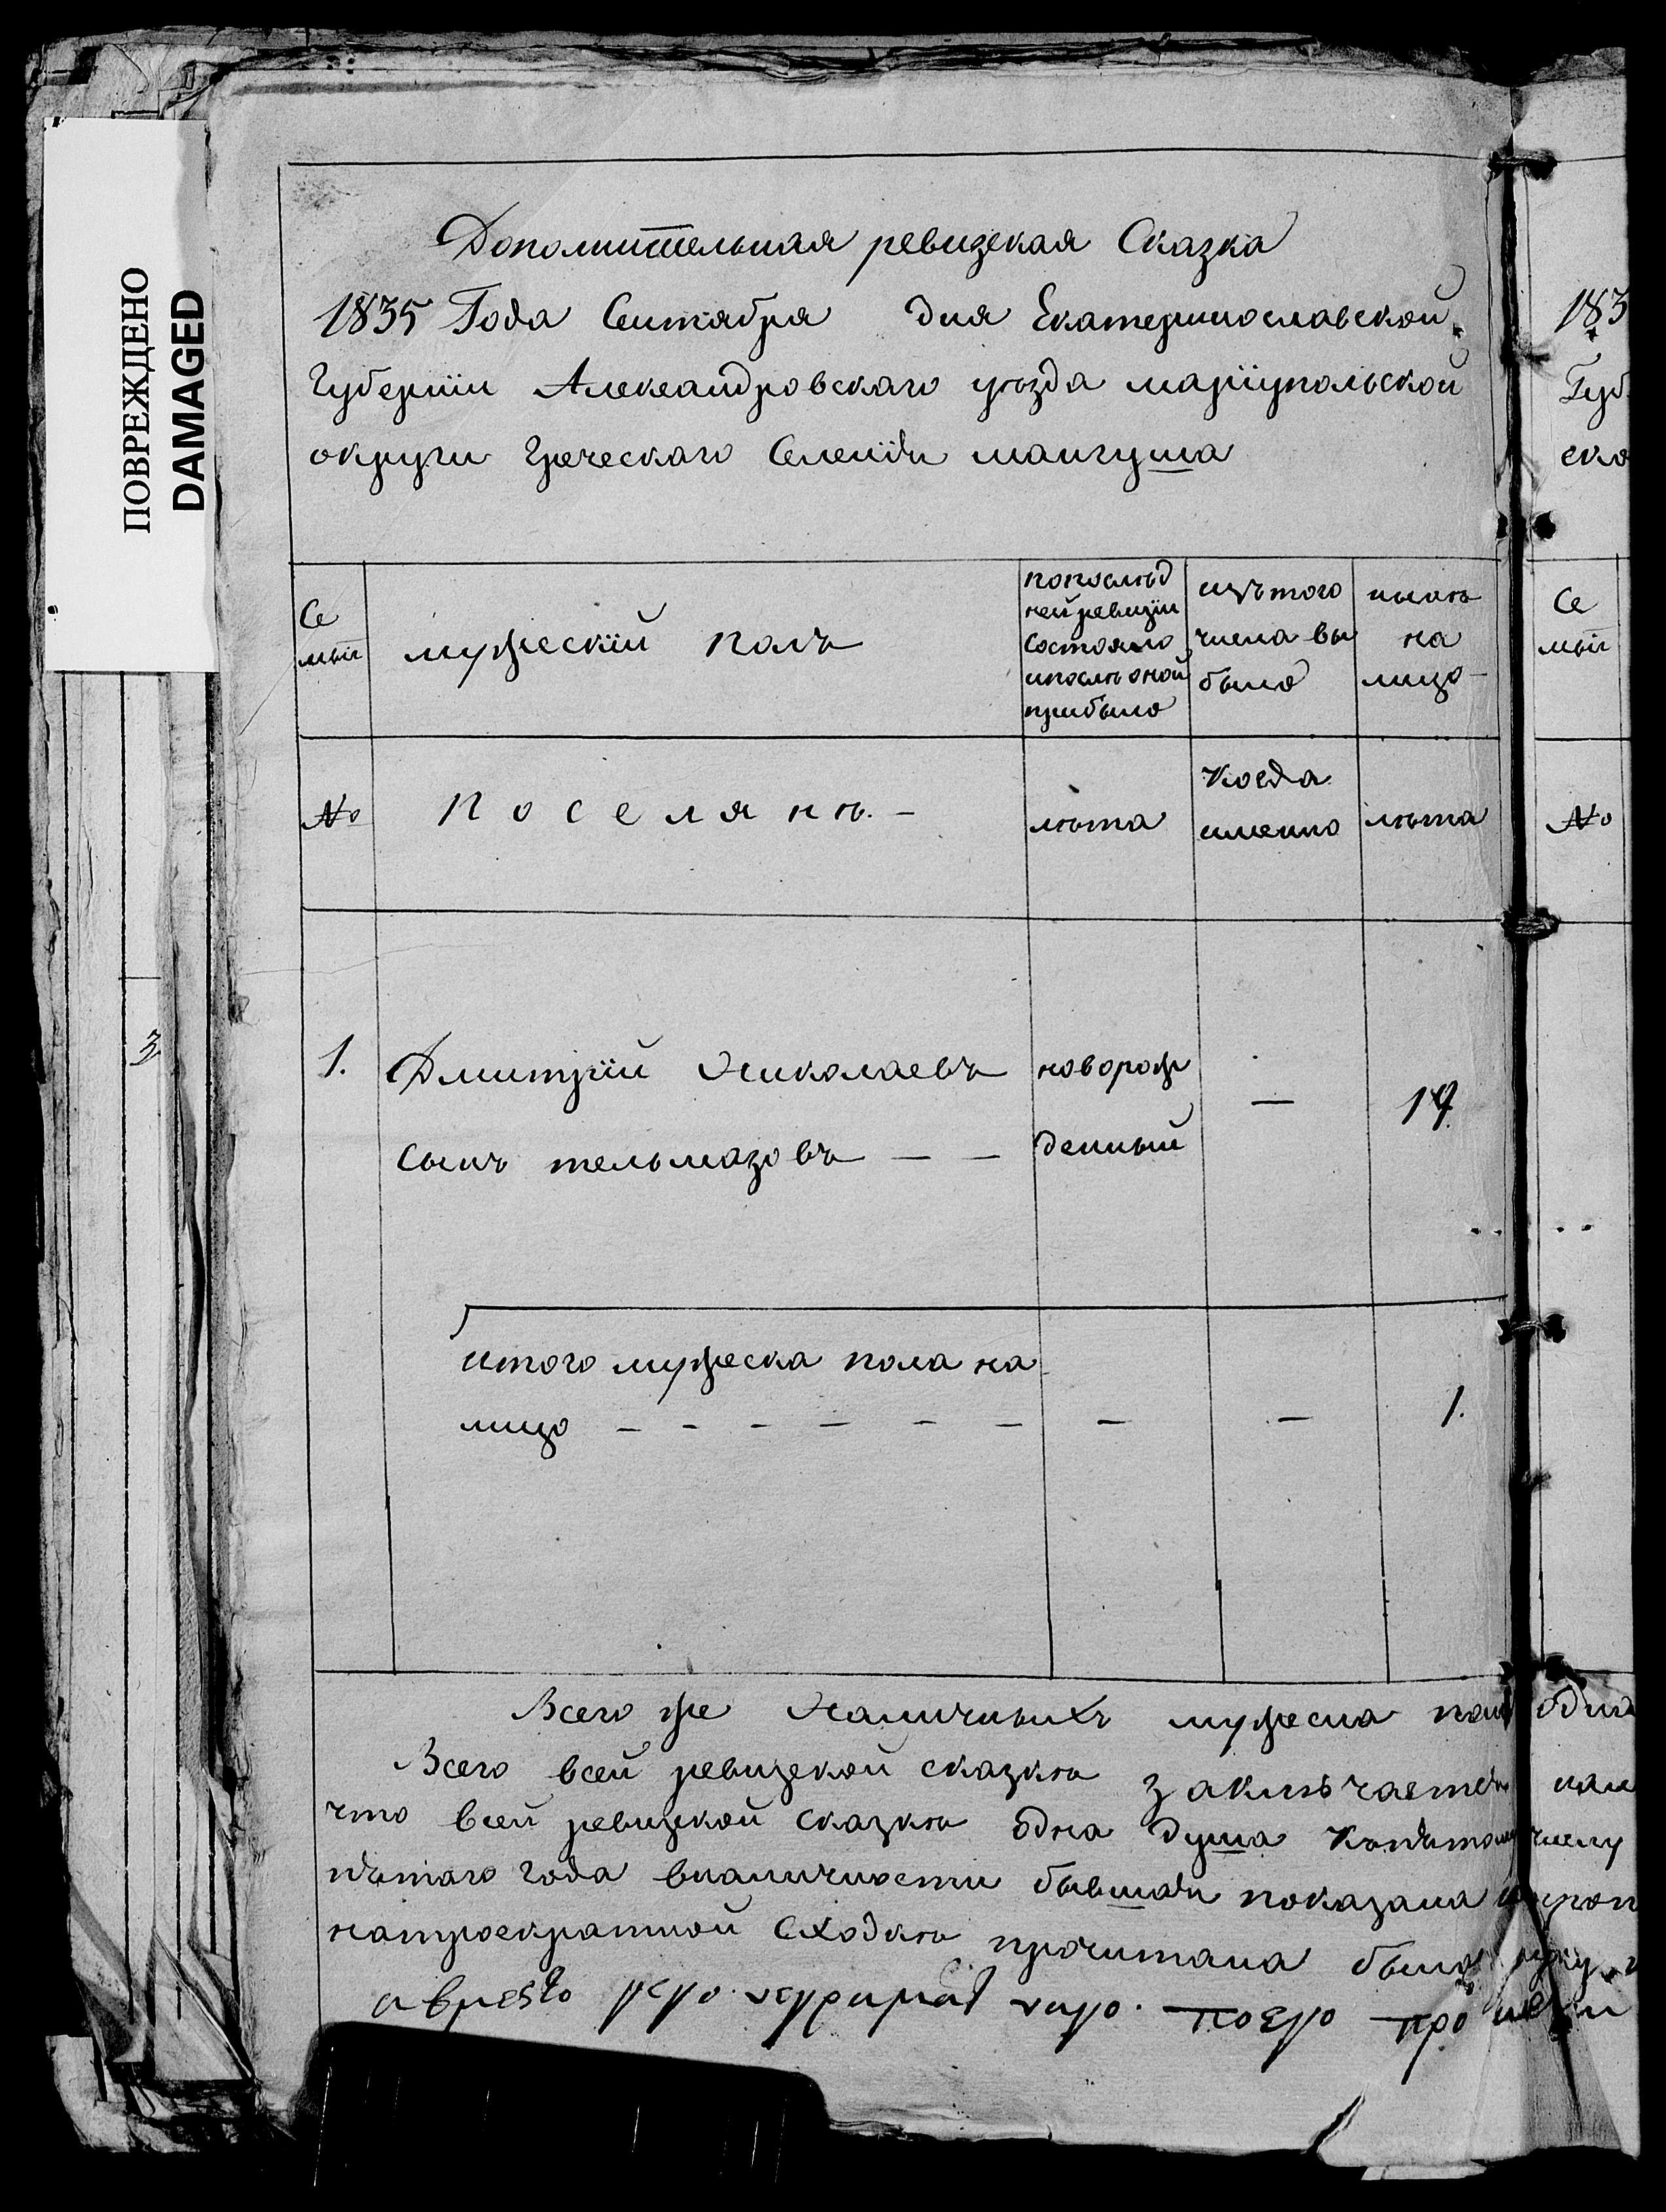 ПОВРЕЖДЕНО
DAMAGED
3
Дополнительная ревизская Сказка
1835 Года Сентября дня Екатеринославской
Губернїи Александровскаго уѣзда марїупольской
округи Греческаго Селенїя мангуша
Се
мьи
мужескїй полъ
попослѣд
ней ревизїи
Состояло
ипослѣ оной
прибыло
изътого
числа вы
было
нынѣ
на
лицо
№
Поселянъ. —
лѣта
Когда
именно
лѣта
1.
Дмитрїй Николаевъ
Сынъ тельмазовъ — —
новорож
денный
—
итого мужеска пола на
лицо — — — — — — — —
1.
Всего же Наличныхъ мужеска одна
Всего всей ревизской сказкѣ
что всей ревизской Сказкѣ одна душа числу
пѣтаго года вналичности бывшая показана
натроекратной Сходкѣ прочитана
183
Губ
ско
Се
мьи
№